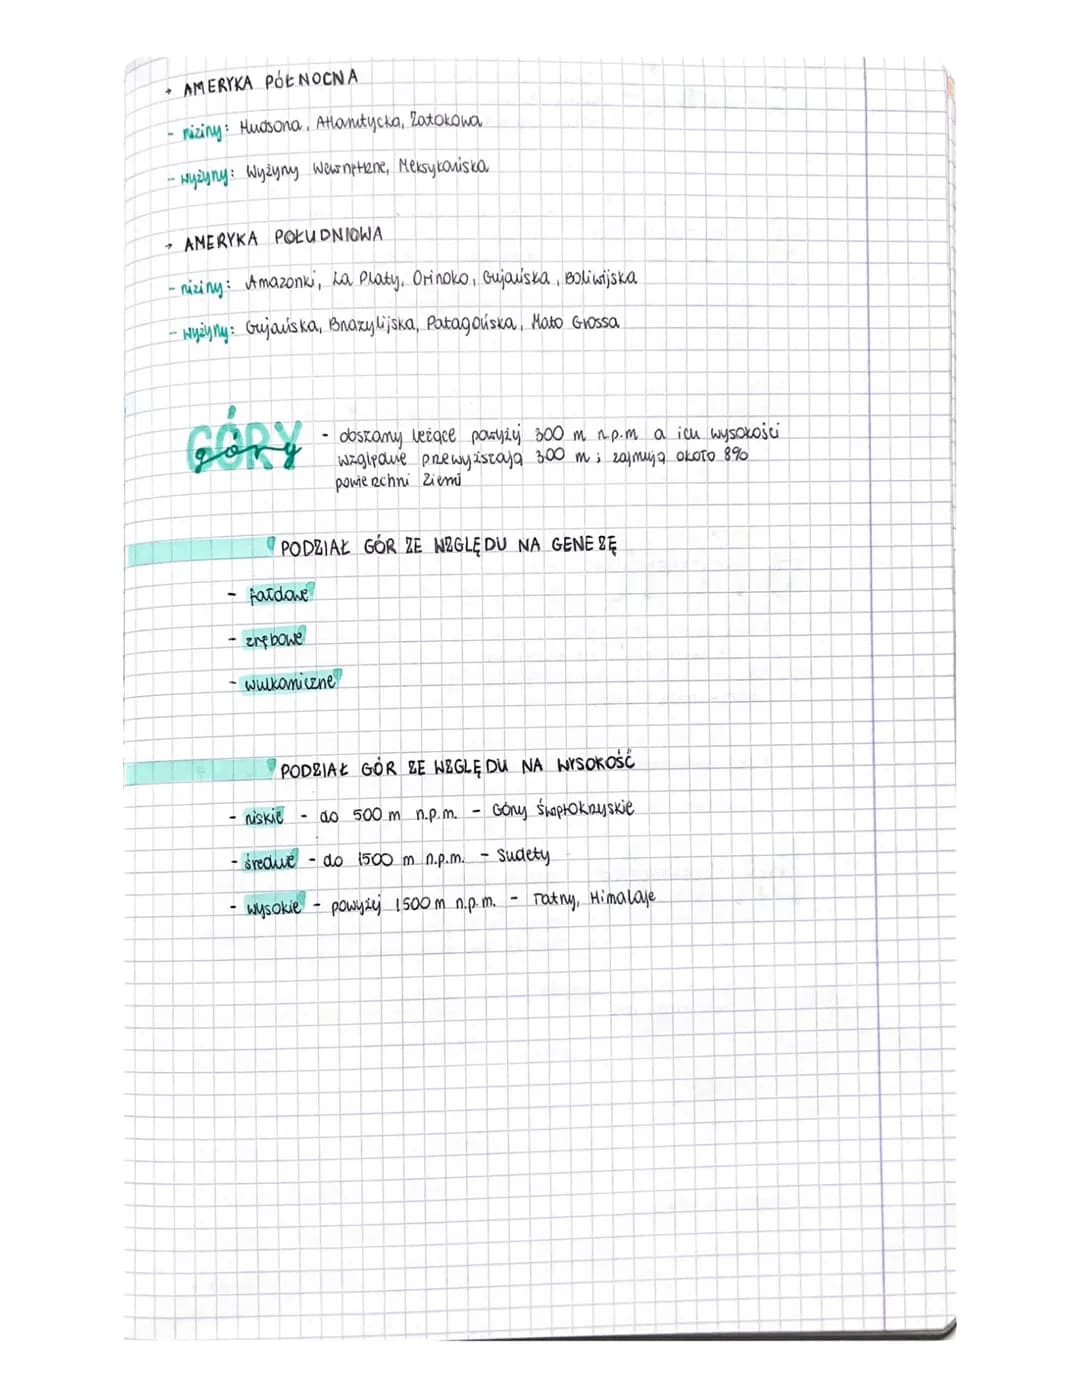 → AMERYKA PÓŁNOCNA
- niziny: Hudsona, Atlantycka, Zatokowa
- wyżyny: Wyżyny Wewnętrzne, Meksykańska
→ AMERYKA POŁUDNIOWA
- niziny: Amazonki, La Platy, Orinoko, Gujańska, Boliwijska
- wyżyny: Gujańska, Brazylijska, Patagońska, Mato Grossa
GÓRY
góry
- obszary leżące powyżej 300 m n.p.m a ich wysokości
względne przewyższają 300 m; zajmują około 8%
powierzchni Ziemi
PODZIAŁ GÓR ZE WZGLĘDU NA GENEZĘ
- fałdowe
- zrębowe
- wulkaniczne
PODZIAŁ GÓR ZE WZGLĘDU NA WYSOKOŚĆ
- niskie - do 500 m n.p.m. - Góry Świętokrzyskie
- średnie - do 1500 m n.p.m. - Sudety
- wysokie - powyżej 1500 m n.p.m. - Tatry, Himalaje